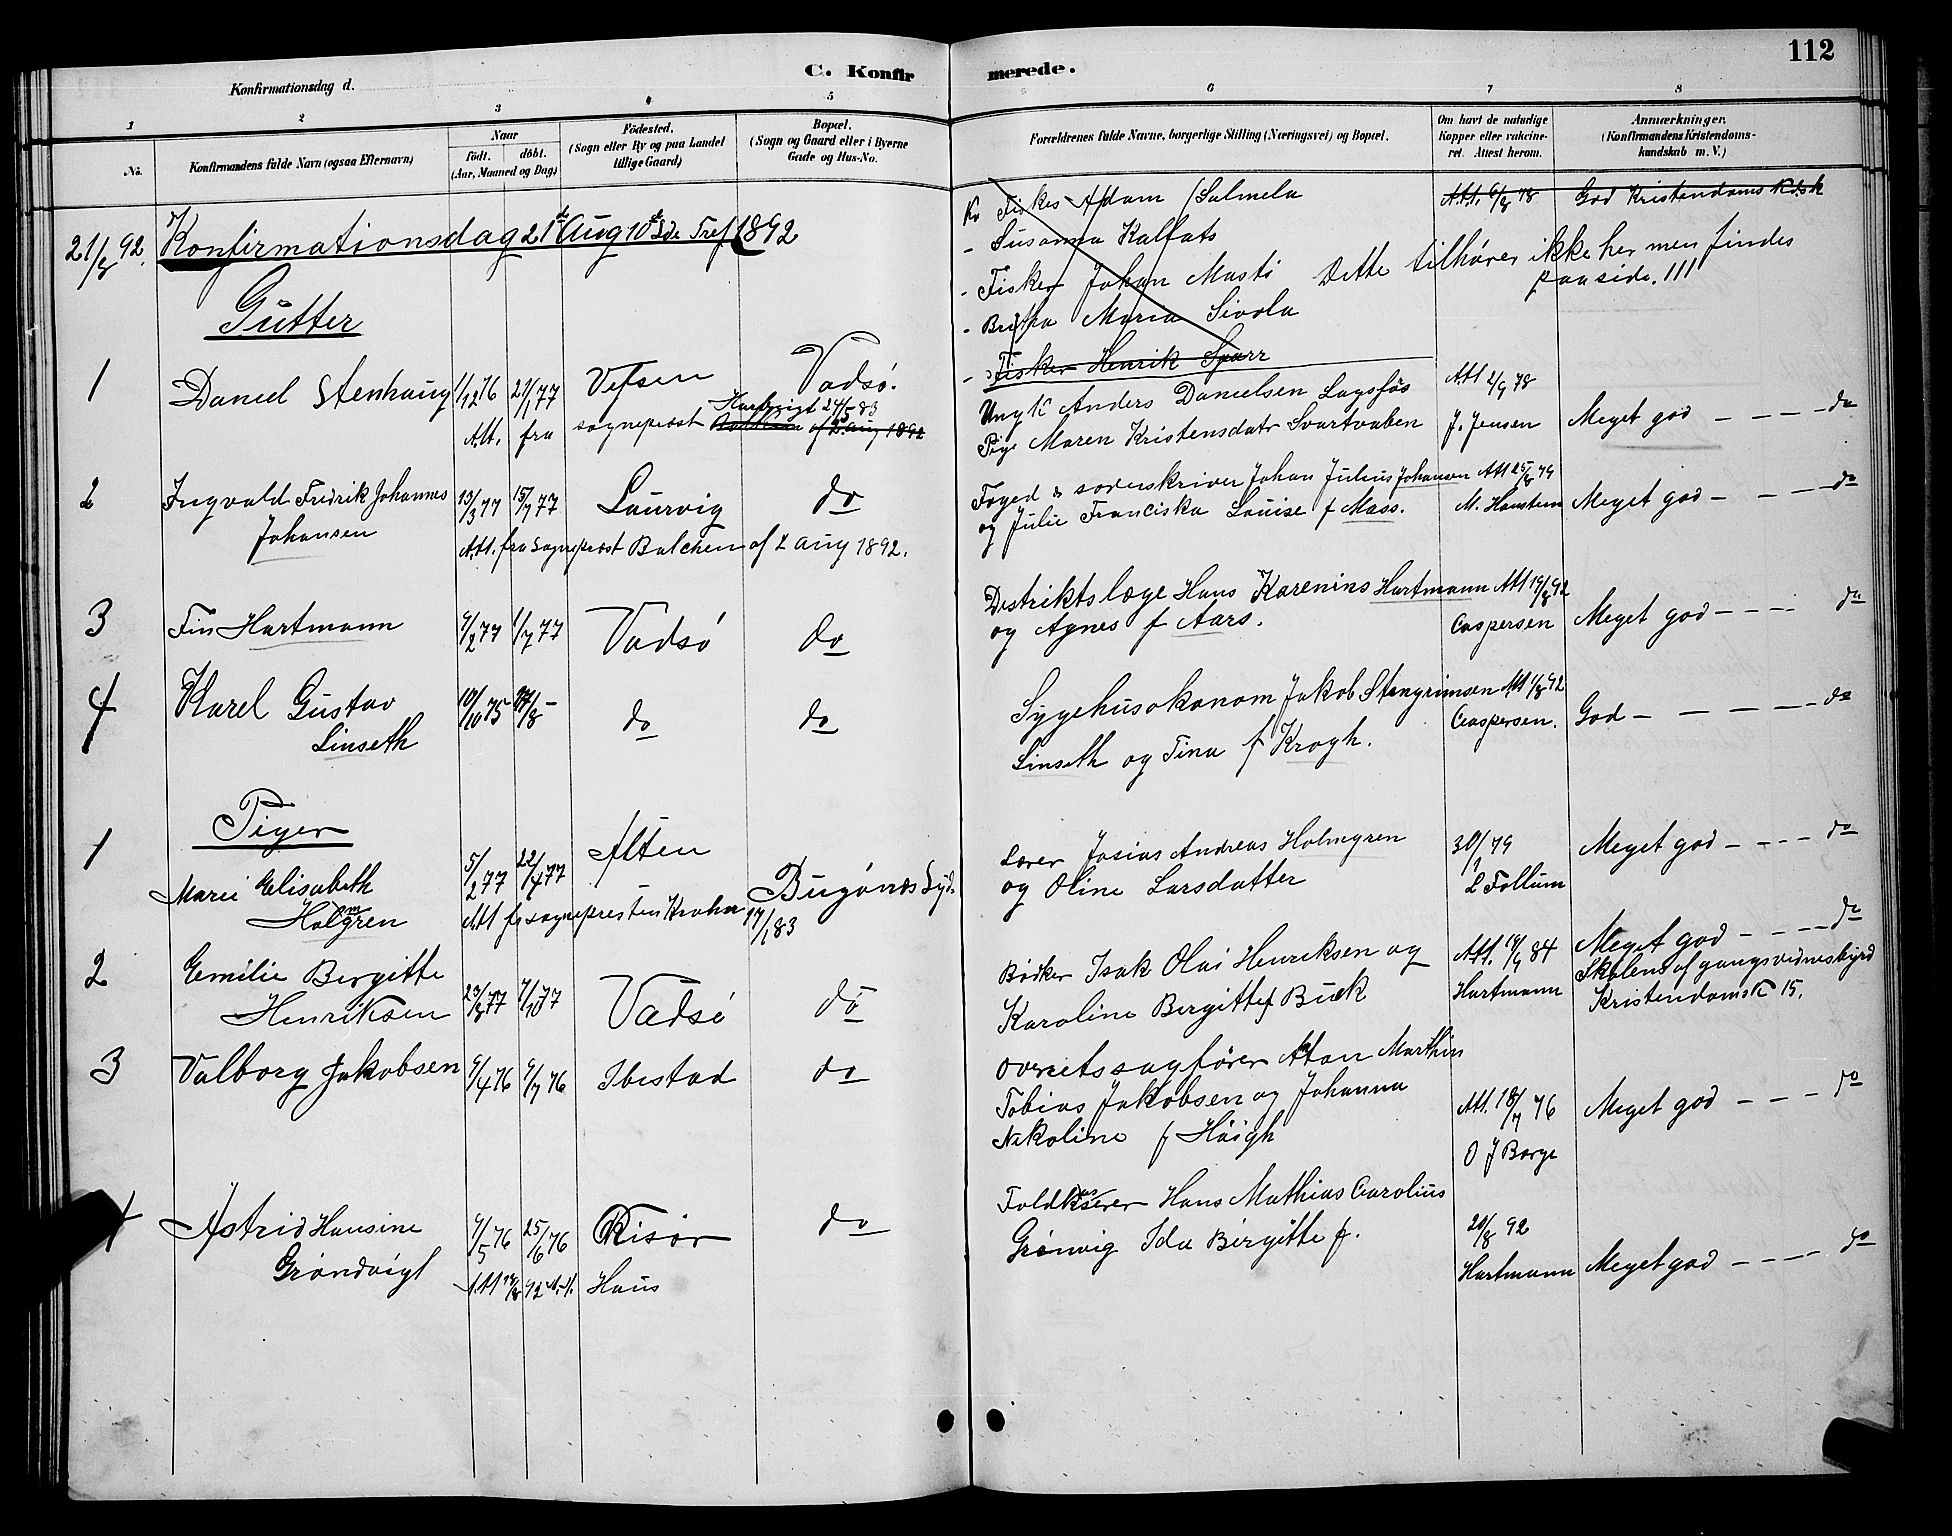 112
Konfirmationsdag d.
C. Konfir
merede.
1 2 3 4 5 6 7 8
No.
Konfirmandens fulde Navn (ogsaa Efternavn)
Naar
født. døbt.
(Aar, Maaned og Dag)
Fødested.
(Sogn eller By og paa Landet
tillige Gaard)
Bopæl.
(Sogn og Gaard eller i Byerne
Gade og Hus-No.
Forældrenes fulde Navne, borgerlige Stilling (Næringsvei) og Bopæl.
Om havt de naturlige
Kopper eller vakcine-
ret. Attest herom.
Anmærkninger.
(Konfirmandens Kristendoms-
kundskab m. V.)
Fisker Adam Salmela Att. 6/8 78 God Kristendoms
- Susanna Kalfats
- Fisker Johan Masti Dette tilhører ikke her men findes
paa side. 111
- Maria Sivola
- Fisker Henrik
21/8 92. Konfirmationsdag 21 Aug 10 Sde Tref 1892
Gutter
1 Daniel Stenhaug 1/12 76 21/1 77 Vefsen Vadsø.
Att. fra sogneprest 24/5 83
af 2 aug 1892
Ungk Anders Danielsen Att 2/9 78
Pige Maren Kristensdatr Svartvaben J. Jensen Meget god - - - - do
2 Ingvald Fredrik Johannes 13/3 77 15/7 77 Laurvig do
Johansen Att. fra sogneprest Balchen af 2 aug 1892.
Foged & sorenskriver Johan Julius Johansen Att 25/8 79
og Julie Franciska Louise f Mass. M. Meget god - - - do
3 Fin Hartmann 9/2 77 1/7 77 Vadsø do
Distriktslæge Hans Karenins Hartmann Att 19/8 92
og Agnes f Aars. Caspersen Meget god - - - - do
4 Karel Gustav 10/10 75 do do
Linseth
Sygehusøkonom Jakob Stengrimsen Att 1/8 92
Linseth og Tina f Krogh. Caspersen. God - - - - - do
Piger
1 Marie Elisabeth 5/2 77 22/4 77 Alten Bugønæs Syd.
Holmgren Att fr sognepresten Krohn 17/1 83
Lærer Josias Andreas Holmgren 30/1 79
og Oline Larsdatter L Follum Meget god - - - - do
2 Emilie Bergitte 23/8 77 7/10 77 Vadsø do
Henriksen
Bødker Isak Olai Henriksen og Att. 19/9 84 Meget god - - - - do
Karoline Bergitte f Buck Hartmann Skolens afgangsvidnesbyrd
Kristendomsk 15.
3 Valborg Jakobsen 9/4 76 9/7 76 Ibestad do
Overretssagfører Marthin
Tobias Jakobsen og Johanna Att. 18/7 76 Meget god - - - do
Nikoline f Høigh O J Borge
4 Astrid Hansine 9/5 76 25/6 76 Risør do
Grøndvigt Haus
Toldkasserer Hans Mathias Carolius 20/8 92
Grønvig Ida Birgitte f. Hartmann Meget god - - - - do